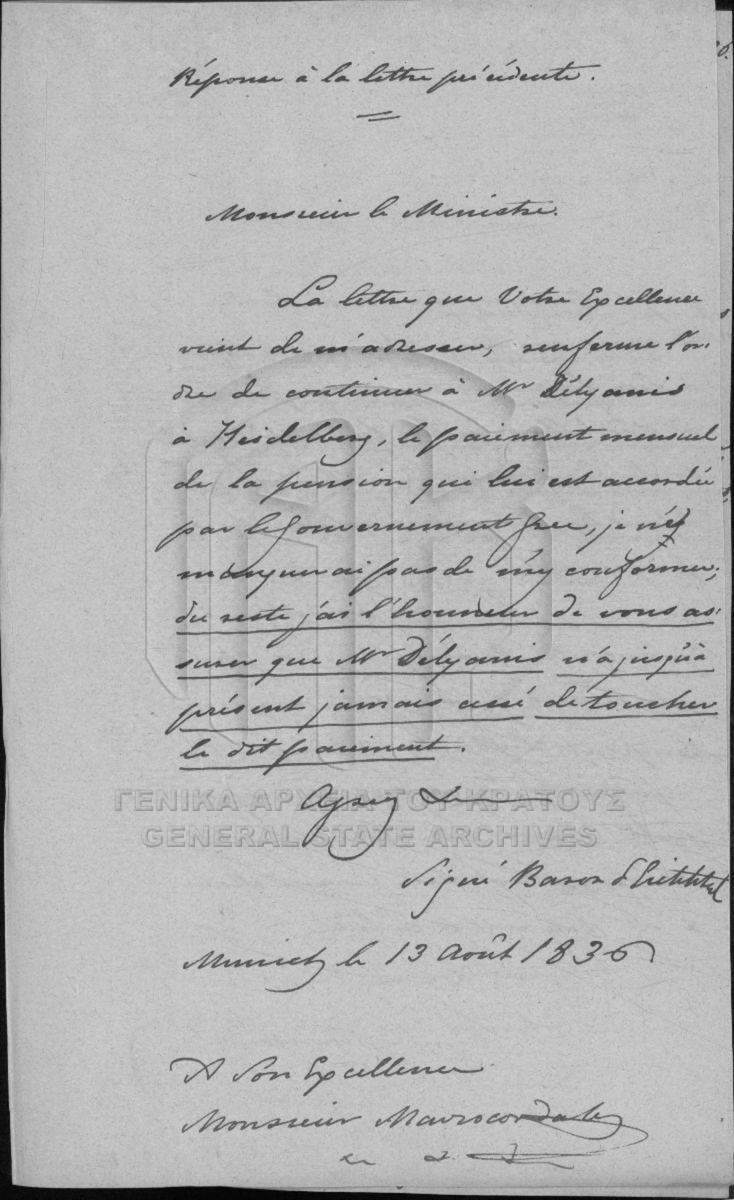 Réponse à la lettre précédente.
Monsieur le Ministre.
La lettre que Votre Excellence
vient de m'adresser, renferme l'or-
dre de continuer à Mr Délyanis
à Heidelberg, le paiement mensuel
de la pension qui lui est accordée
par le Gouvernement Grec, je n'y
manquerai pas de m'y conformer;
du reste j'ai l'honneur de vous as-
surer que Mr Délyanis n'a jusqu'à
présent jamais cessé de toucher
le dit paiement.
ΓΕΝΙΚΑ ΑΡΧΕΙΑ ΤΟΥ ΚΡΑΤΟΥΣ
GENERAL STATE ARCHIVES
Signé Baron
Munich le 13 Août 1836
A Son Excellence
Monsieur Mavrocordato